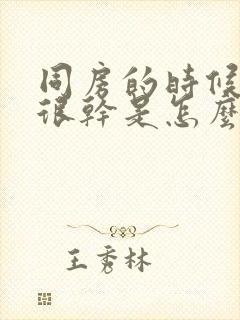 同房的時候
很幹是怎麼
王秀林